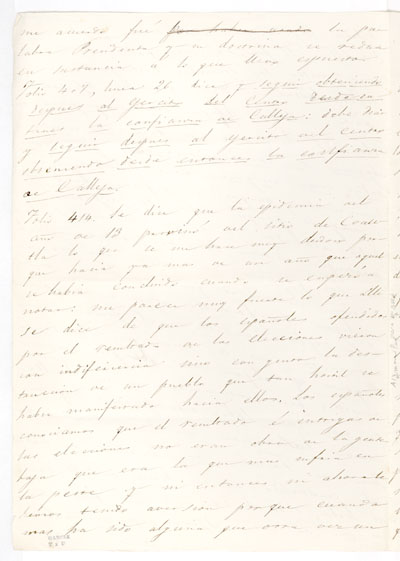 me acuerdo fué la pa
labra Presidente y su doctrina se reduce
en sustancia a lo que llevo espuesto
Folio 407, linea 26 dice y seguir obteniendo
despues al Ejercito del Centro desde en
tonces la confianza de Calleja: debe decir
y seguir despues al ejercito del centro
obteniendo desde entonces la confianza
de Calleja.
Folio 414. Se dice que la epidemia del
año de 13 provino del sitio de Cuau
tla lo que se me hace muy dudoso por
que hacia ya mas de un año que aquel
se habia concluido cuando se empezó a
notar: me parece muy fuerte lo que alli
se dice de que los españoles ofendidos
por el resultado de las elecciones vieron
con indiferencia sino con gusto la des
truccion de un pueblo que tan hostil se
habia manifestado hacia ellos. Los españoles
conociamos que el resultado é intrigas de
las elecciones no eran obra de la gente
baja que era la que mas sufria en
la peste y ni entonces ni ahora le
hemos tenido aversion porque cuando
mas ha sido alguna que otra vez un